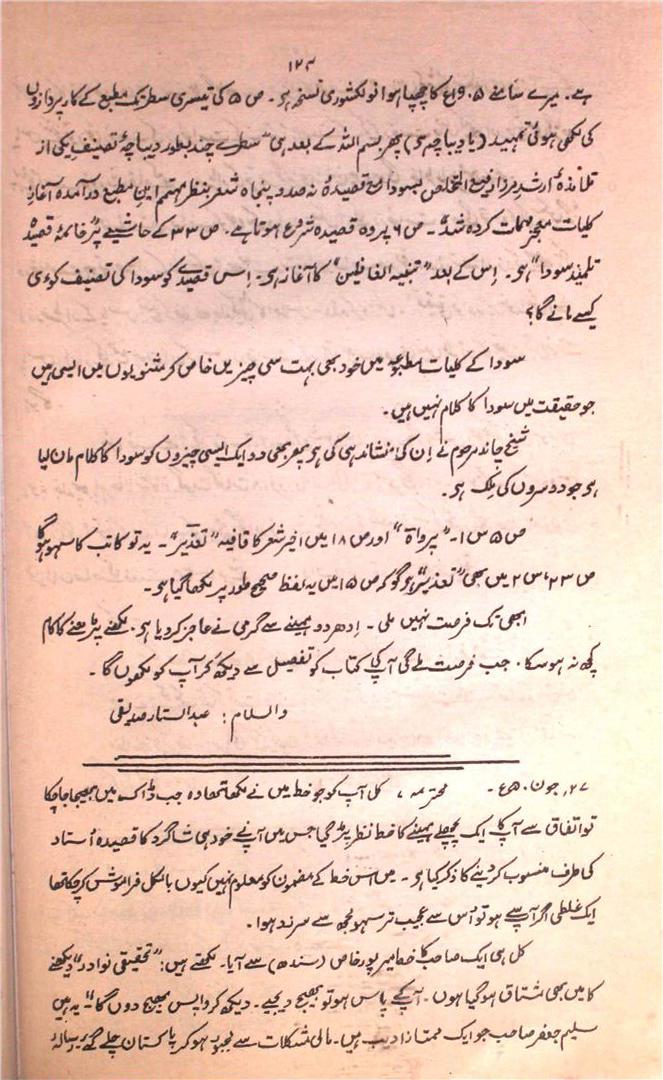 ۱۲۴
ہے۔ میرے سامنے ۱۹۰۵ع کا چھپا ہوا نولکشوری نسخہ ہو۔ ص ۵ کی تیسری سطر تک مطبع کے کار پردازوں
کی لکھی ہوئی تمہید (یا دیباچہ ہو) پھر بسم اللہ کے بعد ہی "سطرے چند بطور دیباچۂ تصنیف یکی از
تلامذۂ ارشد مرزا رفیع المتخلص بسودا مع قصیدۂ نہ صد و پنجاہ شعر بنظر مہتمم این مطبع درآمدہ آغاز
کلیات بہمان کردہ شد"۔ ص ۶ پر وہ قصیدہ شروع ہوتا ہے۔ ص ۳۳ کے حاشیے پر "خاتمۂ قصیدۂ
تلمیذ سودا" ہو۔ اِس کے بعد "تنبیہ الغافلین" کا آغاز ہو۔ اِس قصیدے کو سودا کی تصنیف کوئی
کیسے مانے گا؟
سودا کے کلیات مطبوعہ میں خود بھی بہت سی چیزیں خاص کر مثنویوں میں ایسی ہیں
جو حقیقت میں سودا کا کلام نہیں ہیں۔
شیخ چاند مرحوم نے اِن کی نشاندہی کی ہو پھر بھی دو ایک ایسی چیزوں کو سودا کا کلام مان لیا
ہو جو دوسروں کی مِلک ہو۔
ص ۵ س ۱۔ "پرواۃ" اور ص ۱۸ میں اخیر شعر کا قافیہ "تعذیر"۔ یہ تو کاتب کا سہو ہوگا
ص ۲۳، س ۲ میں بھی "تعذیر" ہو گو کہ ص ۱۵ میں یہ لفظ صحیح طور پر لکھا گیا ہو۔
ابھی تک فرصت نہیں ملی۔ اِدھر دو مہینے سے گرمی نے عاجز کر دیا ہو۔ لکھنے پڑھنے کا کام
کچھ نہ ہو سکا۔ جب فرصت ملے گی آپ کی کتاب کو تفصیل سے دیکھ کر آپ کو لکھوں گا۔
والسلام: عبدالستار صدیقی
۲۷؍ جون ۵۰ع۔ محترمہ، کل آپ کو جو خط میں نے لکھا تھا وہ جب ڈاک میں بھیجا جا چکا
تو اتفاق سے آپ کا ایک پچھلے مہینے کا خط نظر پڑ گیا جس میں آپ نے خود ہی شاگرد کا قصیدہ اُستاد
کی طرف منسوب کر دینے کا ذکر کیا ہو۔ میں اس خط کے مضمون کو معلوم نہیں کیوں بالکل فراموش کر چکا تھا
ایک غلطی اگر آپ سے ہو تو اُس سے عجیب تر سہو مجھ سے سرزد ہوا۔
کل ہی ایک صاحب کا خط میرپور خاص (سندھ) سے آیا۔ لکھتے ہیں: "تحقیقی نوادر" دیکھنے
کا میں بھی مشتاق ہو گیا ہوں۔ آپ کے پاس ہو تو بھیج دیجیے۔ دیکھ کر واپس بھیج دوں گا"۔ یہ ہیں
سلیم جعفر صاحب جو ایک ممتاز ادیب ہیں۔ مالی مشکلات سے مجبور ہو کر پاکستان چلے گئے۔ رسالہ